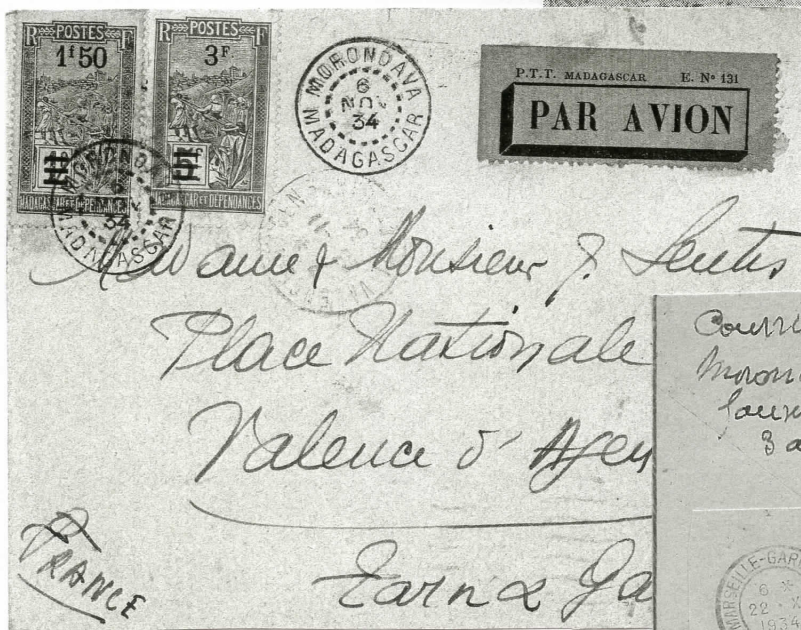 POSTES
R F
1F50
MADAGASCAR ET DÉPENDANCES
POSTES
R F
3F
MADAGASCAR ET DÉPENDANCES
MORONDAVA
6
NOV
34
MADAGASCAR
MORONDAVA
34
MADAGASCAR
P.T.T. MADAGASCAR E. N° 131
PAR AVION
Madame & Monsieur J. Sentis
Place Nationale
Valence d'Agen
Tarn & Ga
FRANCE
Courri
Moron
3 a
MARSEILLE-GAR
6 *
22 - X
1934